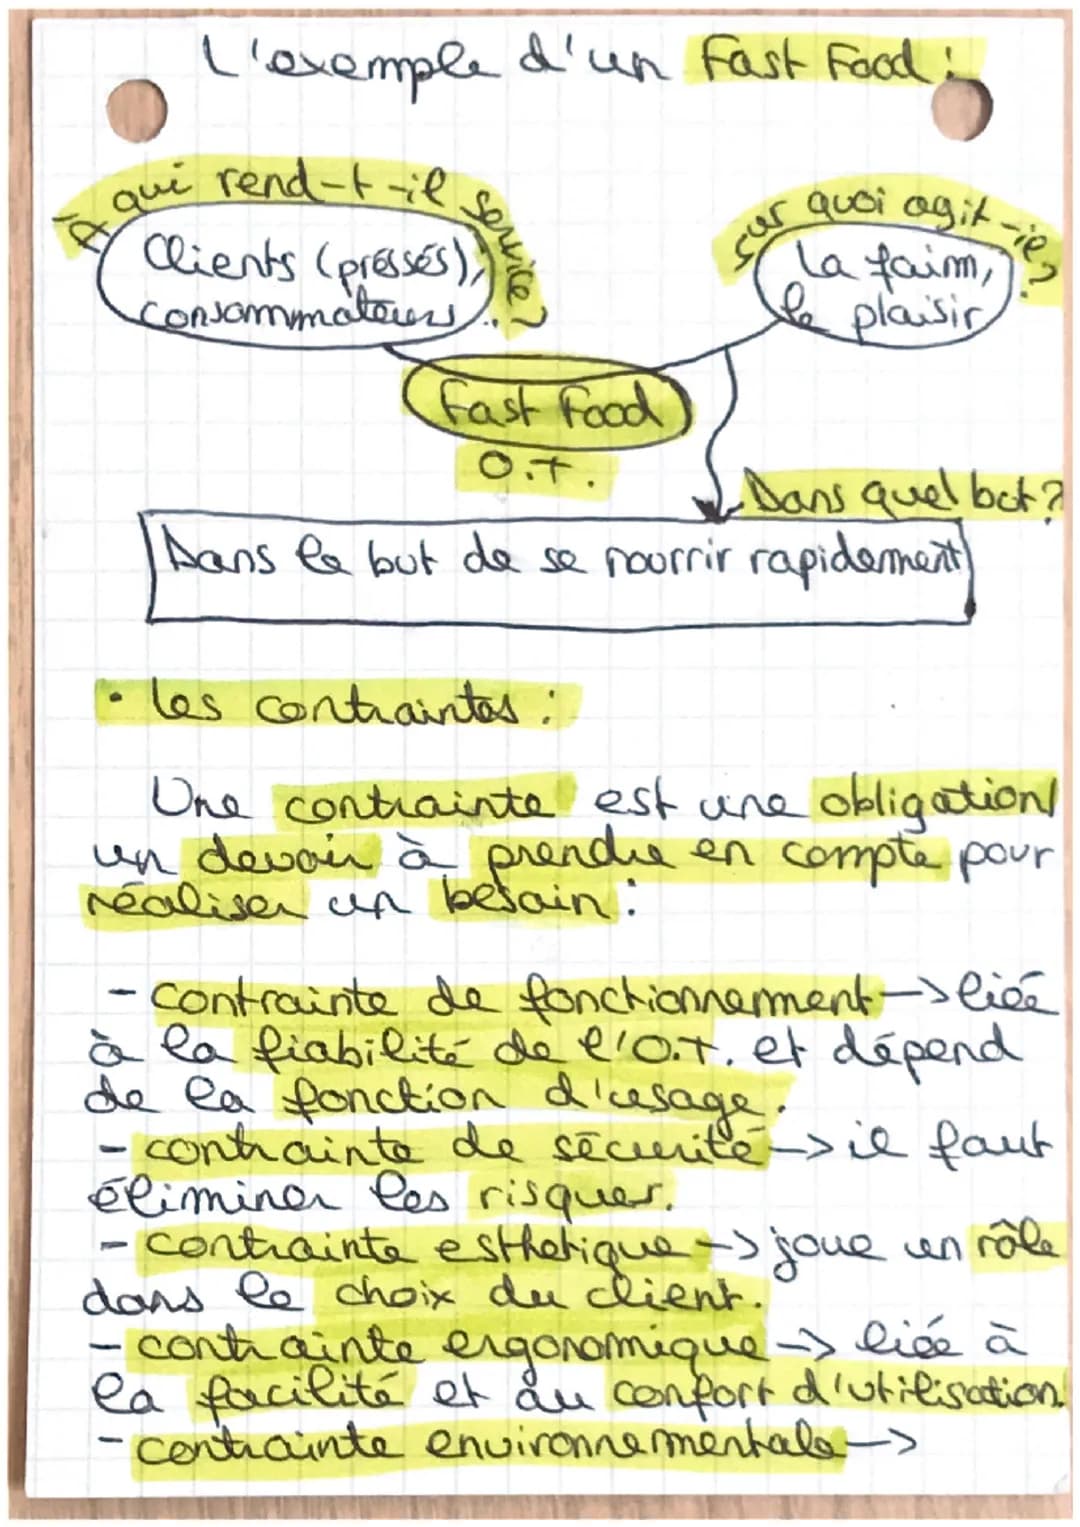 L'exemple d'un Fast Food :
À qui rend-t-il service ?
Clients (pressés),
consommateurs...
Sur quoi agit-il ?
La faim,
le plaisir
Fast Food
O.T.
Dans quel but ?
Dans le but de se nourrir rapidement
• Les contraintes :
Une contrainte est une obligation/
un devoir à prendre en compte pour
réaliser un besoin :
- contrainte de fonctionnement -> liée
à la fiabilité de l'O.T. et dépend
de la fonction d'usage.
- contrainte de sécurité -> il faut
éliminer les risques.
- contrainte esthetique -> joue un rôle
dans le choix du client.
- contrainte ergonomique -> liée à
la facilité et au confort d'utilisation.
- contrainte environnementale ->